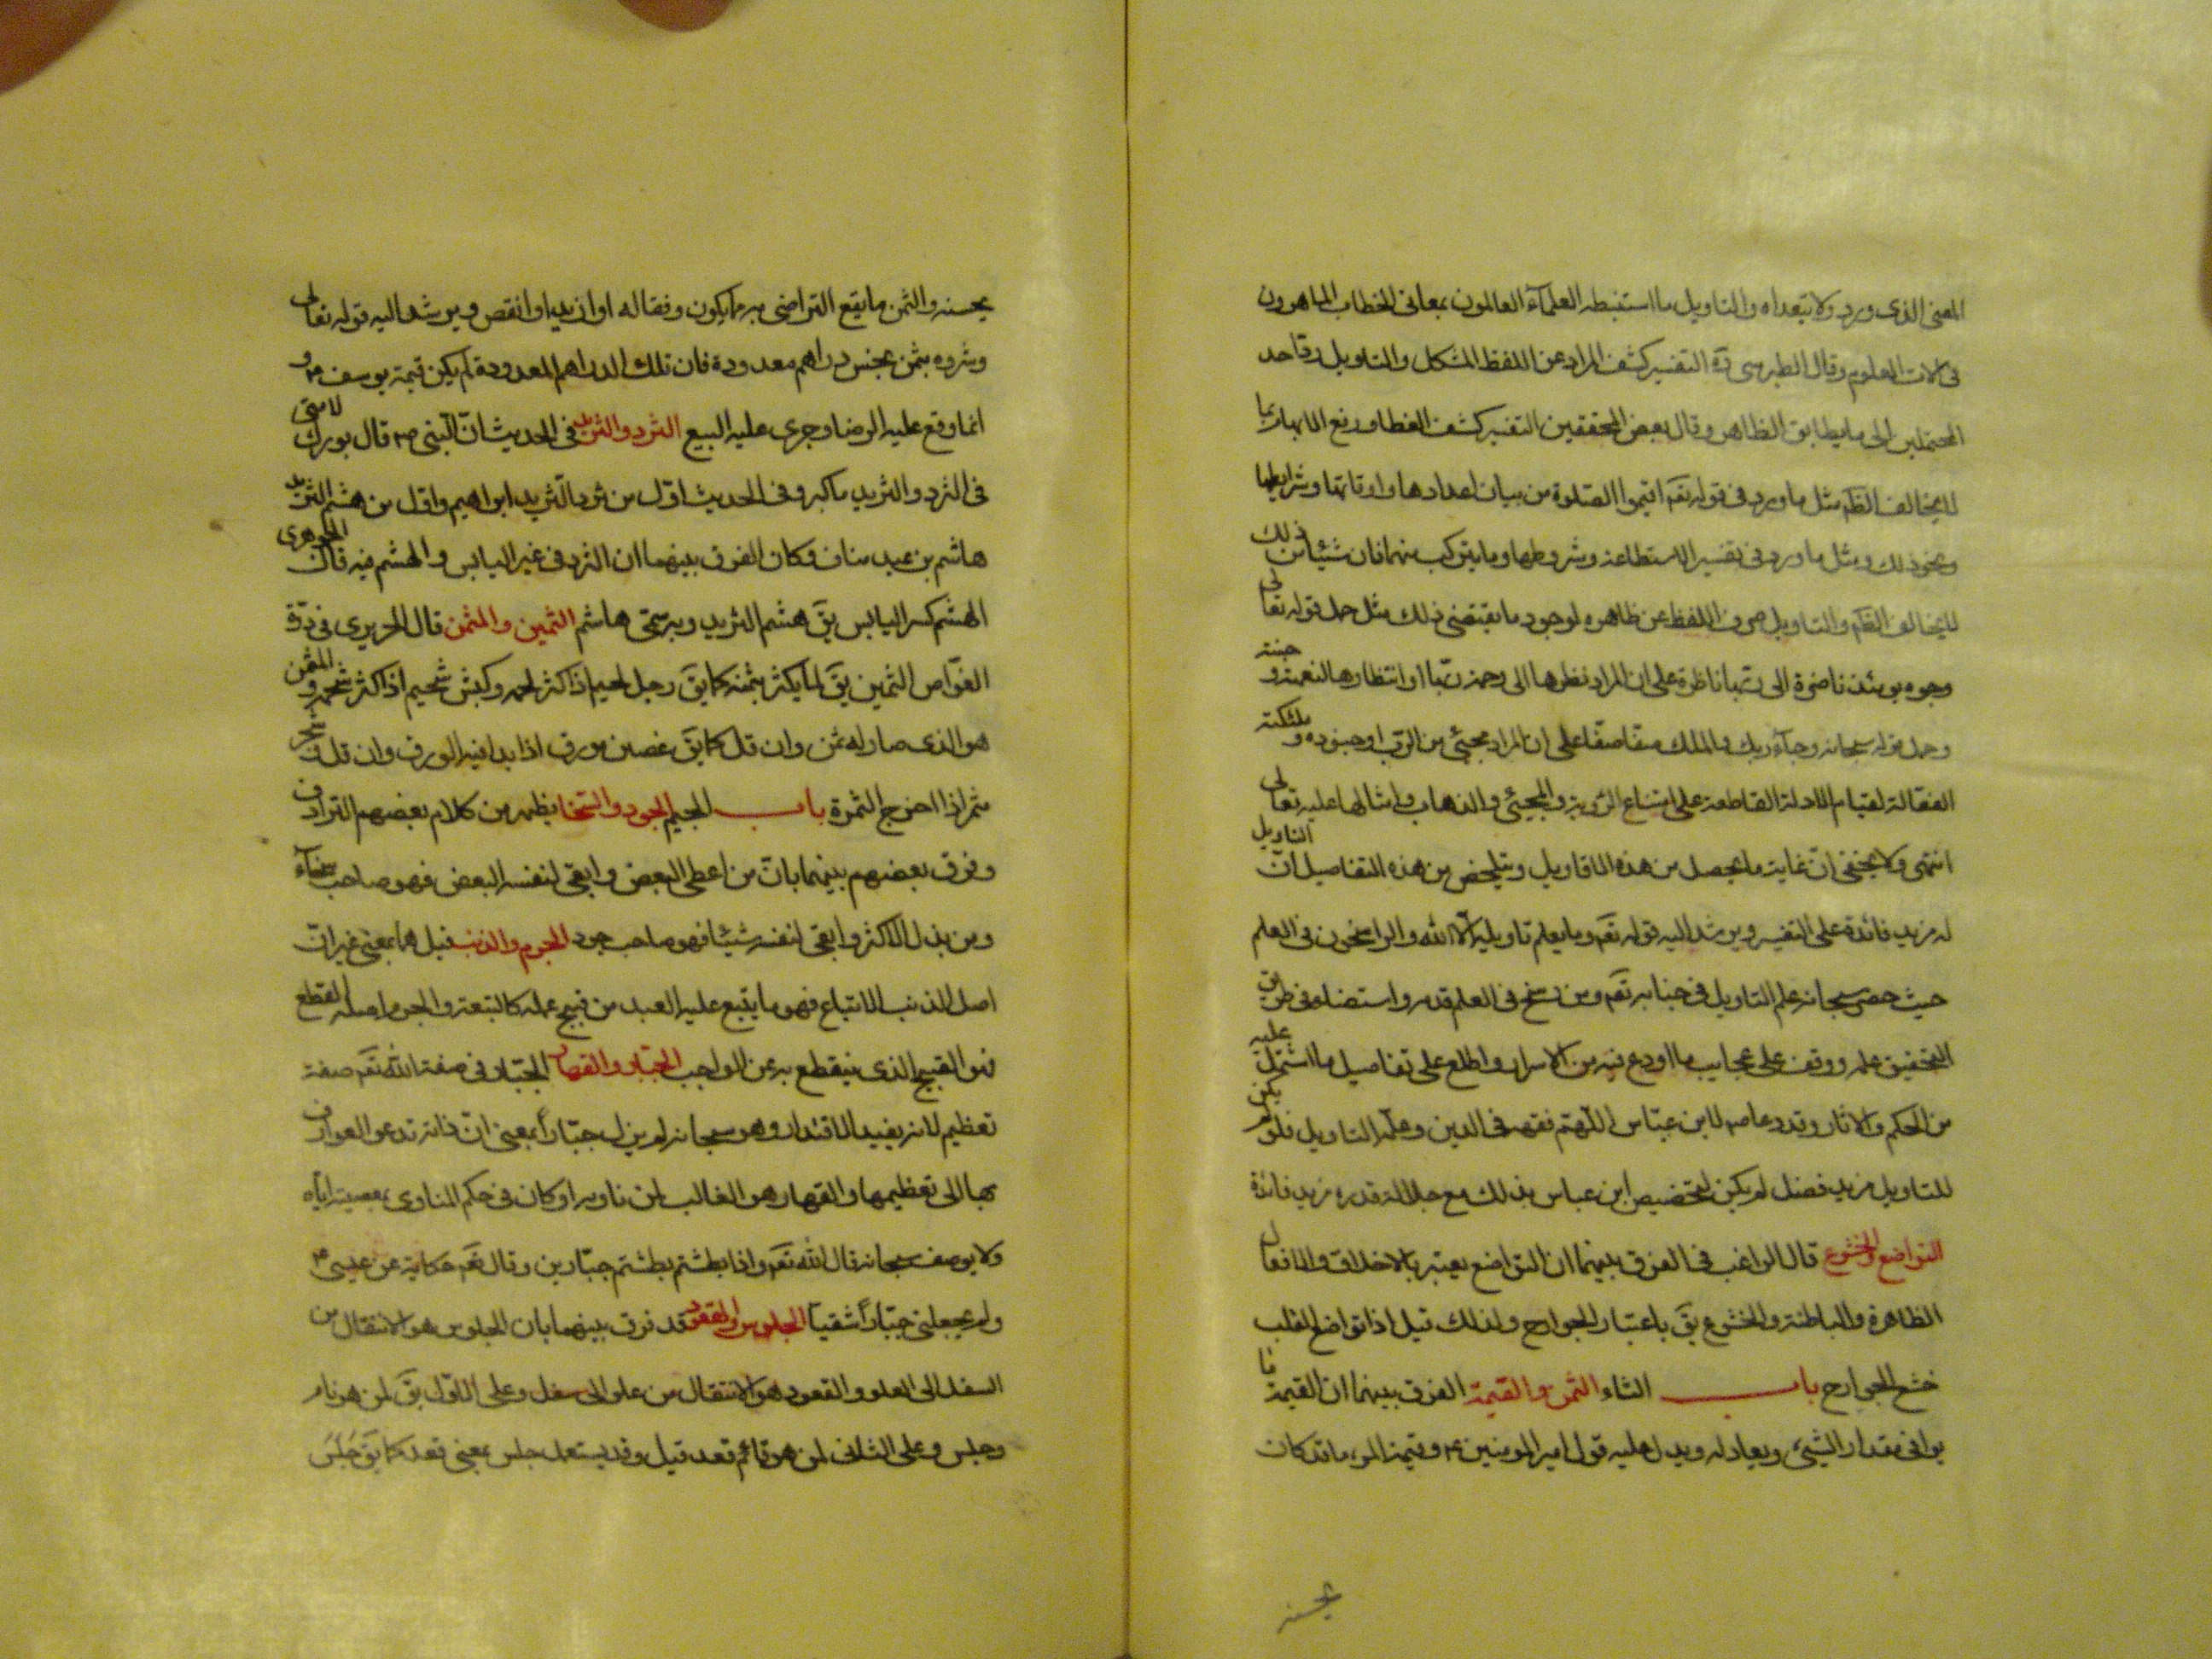 المعنى الذى ورد ولا يتعداه والتاويل ما استنبطه العلمآء العالمون بمعانى الخطاب الماهرون
فى الات العلوم وقال الطبرسى ره التفسير كشف المراد عن اللفظ المشكل والتاويل رد احد
المحتملين الى ما يطابق الظاهر وقال بعض المحققين التفسير كشف الغطا ورفع الابهام بما
لا يخالف الظم مثل ما ورد فى قوله تعم اقيموا الصلوة من بيان اعدادها واوقاتها وشرايطها
ونحو ذلك ومثل ما ورد فى تفسير الاستطاعة وشروطها وما يتركب منها فان شيئا من ذلك
لا يخالف الظم والتاويل صرف اللفظ عن ظاهره لوجود ما يقتضى ذلك مثل حمل قوله تعالى
وجوه يومئذ ناضرة الى ربها ناظرة على ان المراد نظرها الى رحمة ربها او انتظارها لنعمته و جنته
وحمل قوله سبحانه وجآء ربك والملك صفا صفا على ان المراد مجيئ من الرب او جنوده و ملئكته
الفعالة لقيام الادلة القاطعة على امتناع الرؤية والمجيئ والذهاب وامثالها عليه تعالى
انتهى ولا يخفى ان غاية ما يحصل من هذه الاقاويل ويتلخص من هذه التفاصيل ان التاويل
له مزيد فائدة على التفسير ويرشد اليه قوله تعم وما يعلم تاويله الا الله والراسخون فى العلم
حيث حصر سبحانه علم التاويل فى جنابه تعم ومن رسخ فى العلم قدمه واستضاء فى طريق
التحقيق علمه ووقف على عجايب ما اودع فيه من الاسرار واطلع على تفاصيل ما اشتمل عليه
من الحكم والاثار وقد دعا صم لابن عباس اللهم فقهه فى الدين وعلمه التاويل فلو لم يكن
للتاويل مزيد فضل لم يكن لتخصيص ابن عباس بذلك مع جلالة قدره مزيد فائدة
التواضع والخشوع قال الراغب فى الفرق بينهما ان التواضع يعتبر بالاخلاق والافعال
الظاهرة والباطنة والخشوع يق باعتبار الجوارح ولذلك قيل اذا تواضع القلب
خشع الجوارح باب الثاء الثمن والقيمة الفرق بينهما ان القيمة ما
يوافى مقدار الشيئ ويعادله ويدل عليه قول امير المومنين ع وقيمة المرء ما قد كان
يحسنه
يحسنه والثمن ما يقع التراضى به مما يكون وفقا له او ازيد او انقص ويرشد اليه قوله تعالى
وشروه بثمن بخس دراهم معدودة فان تلك الدراهم المعدودة لم يكن قيمة يوسف ع و
انما وقع عليه الرضا وجرى عليه البيع الثرد والثريد فى الحديث ان النبى ص قال بورك لامتى
فى الثرد والثريد ما كبر وفى الحديث اول من ثرد الثريد ابراهيم واول من هشم الثريد
هاشم بن عبد مناف وكان الفرق بينهما ان الثرد فى غير اليابس والهشم فيه قال الجوهرى
الهشم كسر اليابس يق هشم الثريد وبه سمى هاشم الثمين والمثمن قال الحريرى فى درة
الغواص الثمين يق لما يكثر ثمنه كما يق رجل لحيم اذا كثر لحمه وكبش شحيم اذا كثر شحمه و المثمن
هو الذى صار له ثمن وان قل كما يق غصن مورق اذا بدا فيه الورق وان قل و شجر
مثمر اذا اخرج الثمرة باب الجيم الجود والسخا يظهر من كلام بعضهم الترادف
وفرق بعضهم بينهما بان من اعطى البعض وابقى لنفسه البعض فهو صاحب سخآء
ومن بذل الاكثر وابقى لنفسه شيئا فهو صاحب جود الجرم والذنب قيل هما بمعنى غير ان
اصل الذنب الاتباع فهو ما يتبع عليه العبد من قبيح عمله كالتبعة والجرم اصله القطع
فهو القبيح الذى ينقطع به عن الواجب الجبار والقهار الجبار فى صفة الله تعم صفة
تعظيم لانه يفيد الاقتدار وهو سبحانه لم يزل جبارا بمعنى ان ذاته تدعو العوارف
بها الى تعظيمها والقهار هو الغالب لمن ناواه او كان فى حكم المناوى بمعصيته اياه
ولا يوصف سبحانه قال الله تعم واذا بطشتم بطشتم جبارين وقال تعم حكاية عن عيسى ع
ولم يجعلنى جبارا شقيا الجلوس والقعود قد فرق بينهما بان الجلوس هو الانتقال من
السفل الى العلو والقعود هو الانتقال من علو الى سفل وعلى الاول يق لمن هو نام
وجلس وعلى الثانى لمن هو قائم قعد قيل وقد يستعمل جلس بمعنى قعد كما يق جلس